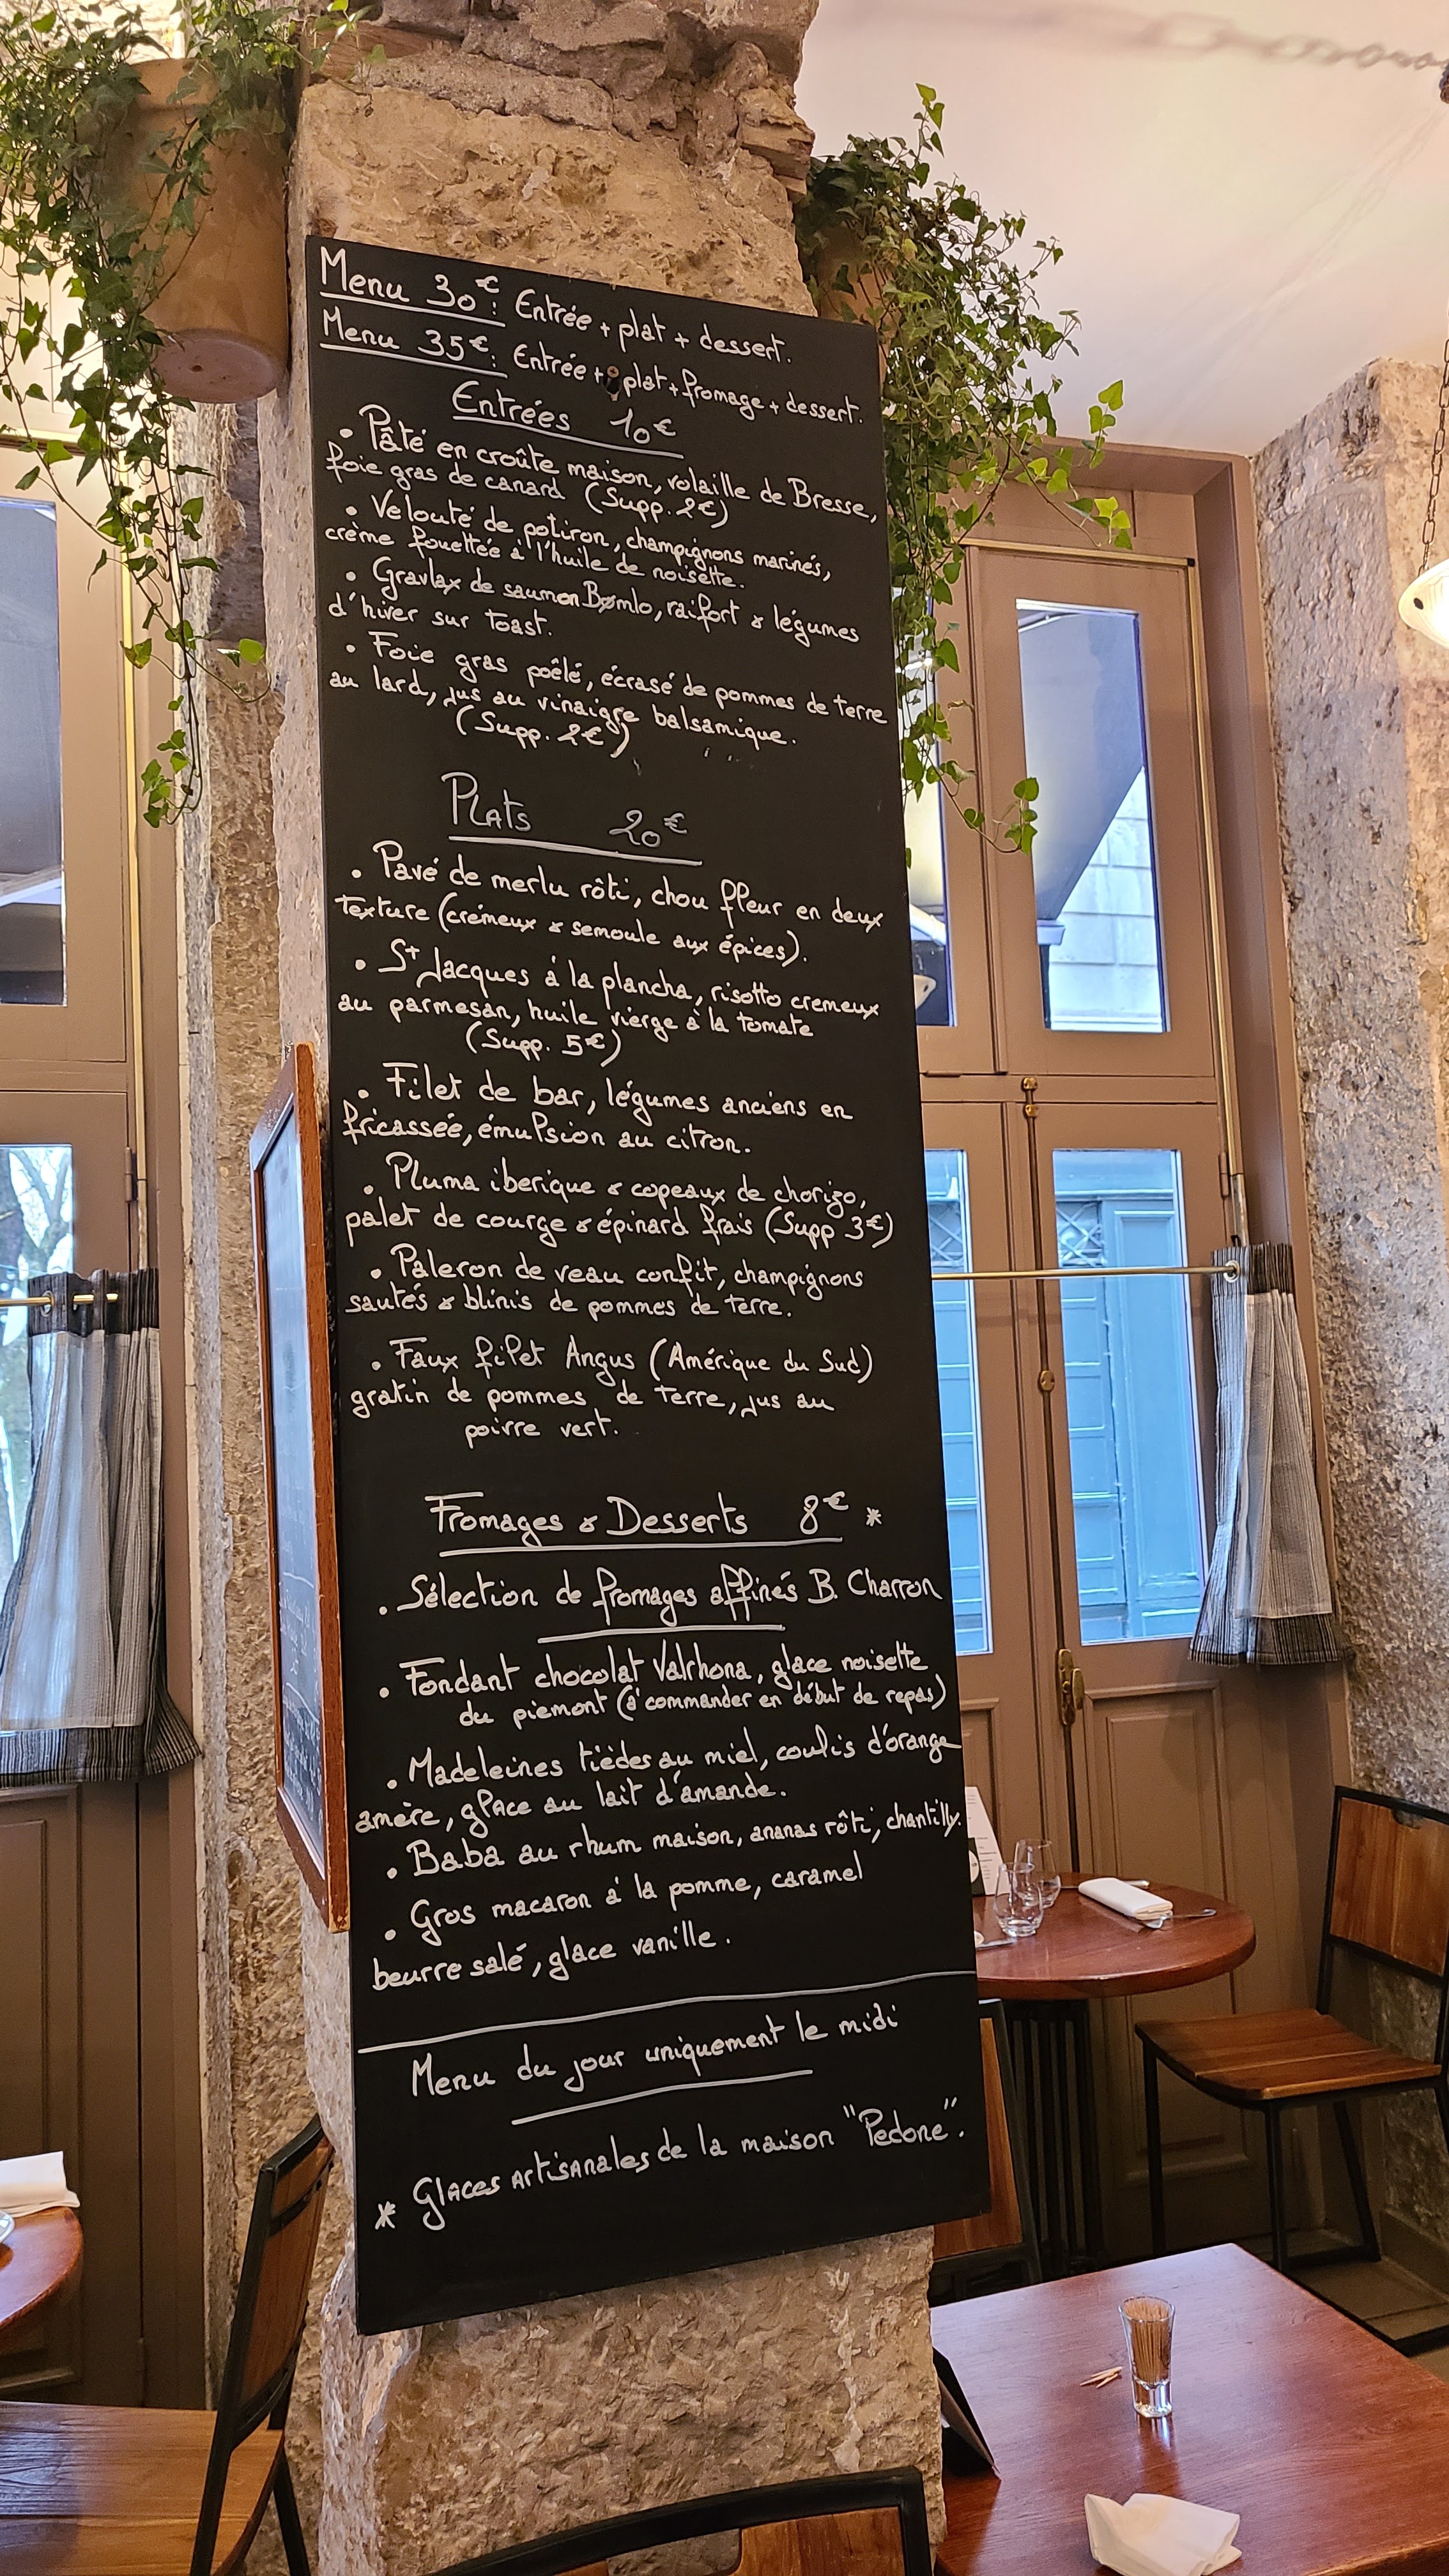 Menu 30€ : Entrée + plat + dessert.
Menu 35€ : Entrée + plat + fromage + dessert.
Entrées 10€
• Pâté en croûte maison, volaille de Bresse,
foie gras de canard (Supp. 2€)
• Velouté de potiron, champignons marinés,
crème fouettée à l'huile de noisette.
• Gravlax de saumon Bømlo, raifort & légumes
d'hiver sur toast.
• Foie gras poêlé, écrasé de pommes de terre
au lard, jus au vinaigre balsamique.
(Supp. 2€)
Plats 20€
• Pavé de merlu rôti, chou fleur en deux
texture (crémeux & semoule aux épices).
• St Jacques à la plancha, risotto cremeux
au parmesan, huile vierge à la tomate
(Supp. 5€)
• Filet de bar, légumes anciens en
fricassée, émulsion au citron.
• Pluma iberique & copeaux de chorizo,
palet de courge & épinard frais (Supp 3€)
• Paleron de veau confit, champignons
sautés & blinis de pommes de terre.
• Faux filet Angus (Amérique du Sud)
gratin de pommes de terre, jus au
poivre vert.
Fromages & Desserts 8€ *
• Sélection de fromages affinés B. Charron
• Fondant chocolat Valrhona, glace noisette
du piemont (à commander en début de repas)
• Madeleines tièdes au miel, coulis d'orange
amère, glace au lait d'amande.
• Baba au rhum maison, ananas rôti, chantilly.
• Gros macaron à la pomme, caramel
beurre salé, glace vanille.
Menu du jour uniquement le midi
* Glaces artisanales de la maison "Pedone".